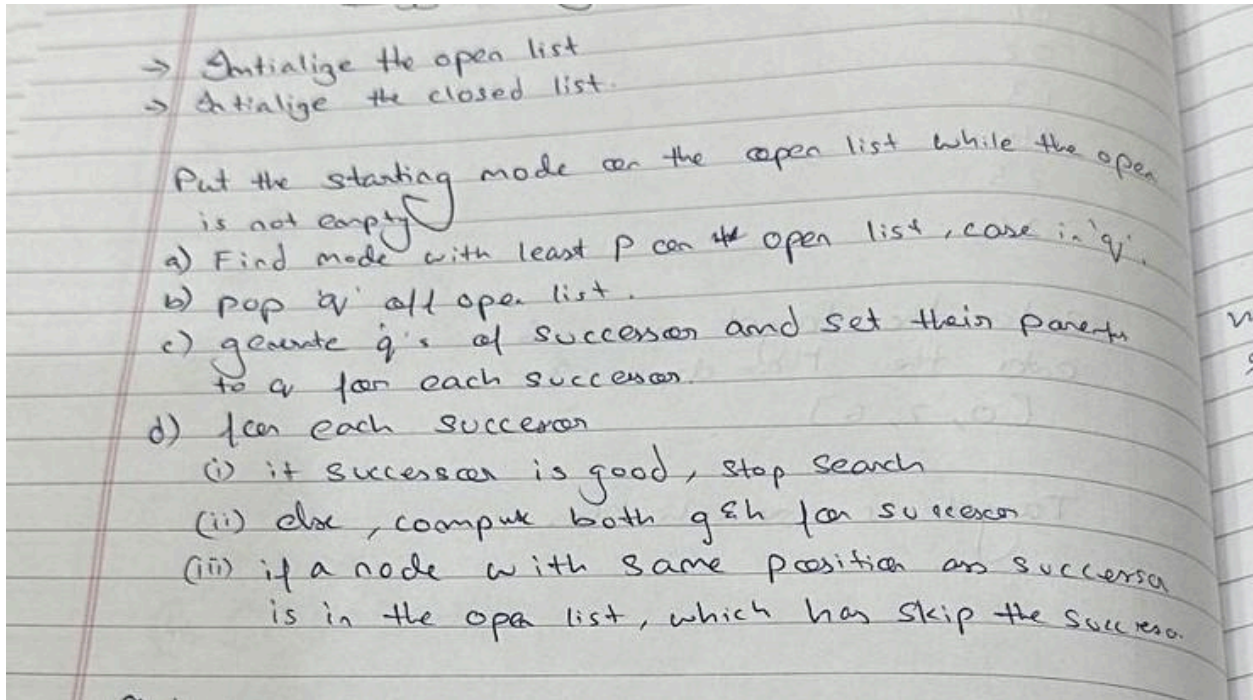 → Intialize the open list
→ Intialize the closed list.
Put the starting mode on the open list while the open
is not empty
a) Find mode with least p on the open list, case in 'q'.
b) pop 'q' off open list.
c) generate q's of successor and set their parents
to q for each successor.
d) for each succesor
(i) if successor is good, stop search
(ii) else, compute both g & h for succesor
(iii) if a node with same position as successor
is in the open list, which has skip the succesor.